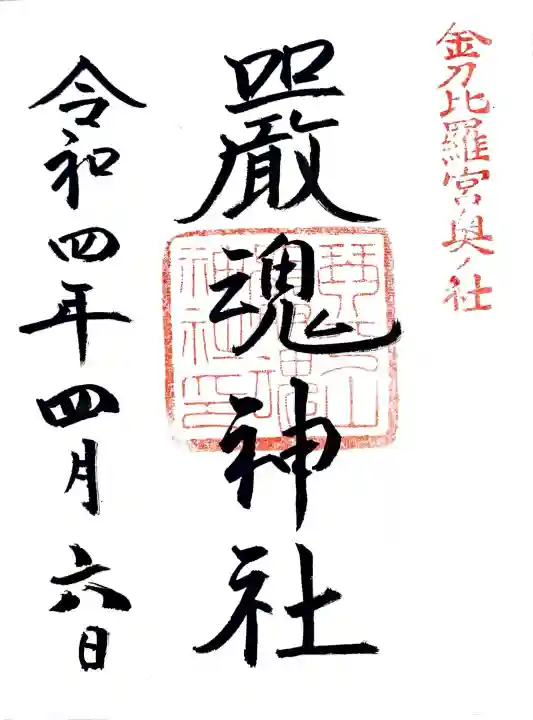 金刀比羅宮奥ノ社
嚴魂神社
令和四年四月六日